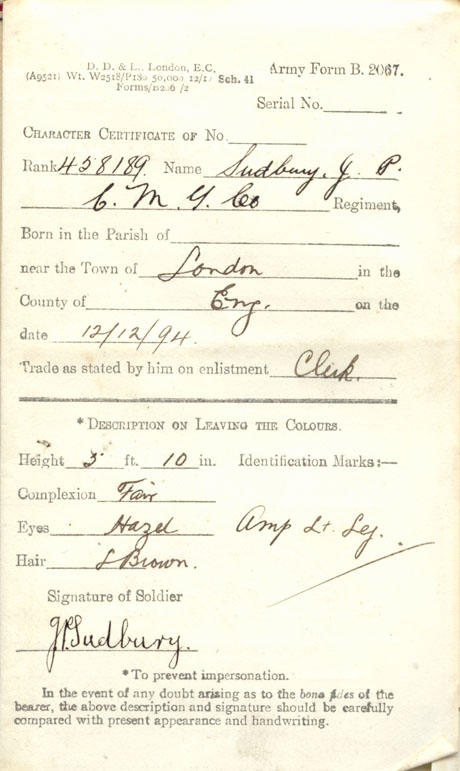 D. D. & L., London, E.C.
(A9521) Wt. W2518/P1 50,000 12/17 Sch. 41
Forms/B2 6 /2
Army Form B. 2067.
Serial No.
CHARACTER CERTIFICATE OF No.
Rank 458189 Name Sudbury. J. P.
C. M. G. Co Regiment,
Born in the Parish of
near the Town of London in the
County of Eng. on the
date 12/12/94.
Trade as stated by him on enlistment Clerk.
*DESCRIPTION ON LEAVING THE COLOURS.
Height 5 ft. 10 in. Identification Marks:—
Complexion Fair
Eyes Hazel Amp Lt. Leg.
Hair L Brown.
Signature of Soldier
JPSudbury.
*To prevent impersonation.
In the event of any doubt arising as to the bona fides of the
bearer, the above description and signature should be carefully
compared with present appearance and handwriting.